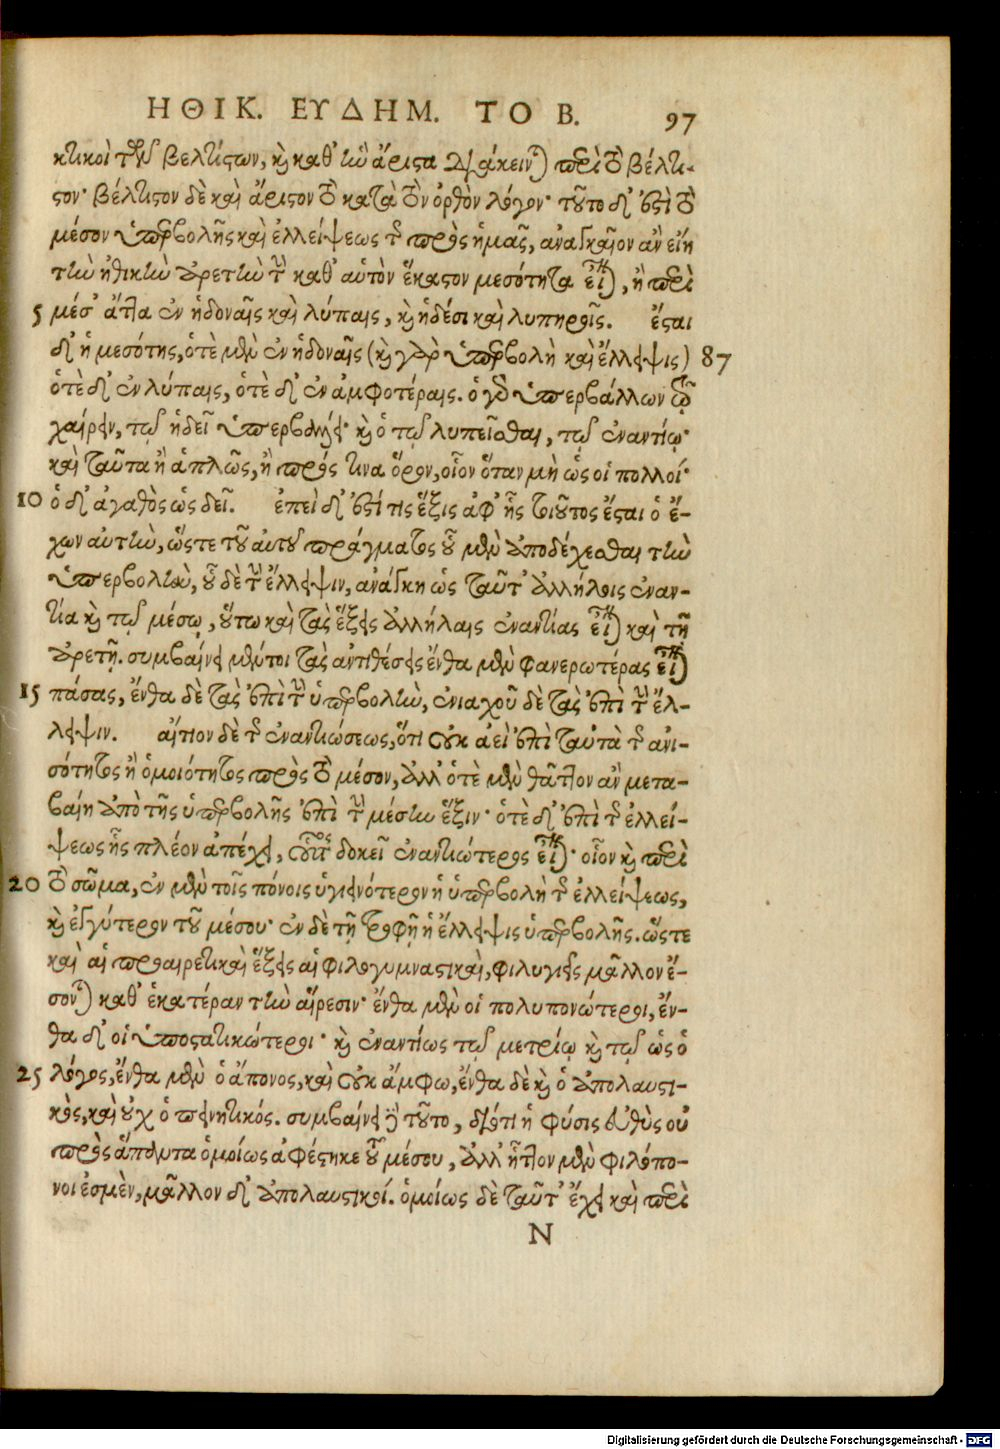 ΗΘΙΚ. ΕΥΔΗΜ. ΤΟ Β. 97
κτικοὶ τῶν βελτίστων, καὶ καθ' ἣν ἄριστα διάκεινται περὶ τὸ βέλτι-
στον· βέλτιστον δὲ καὶ ἄριστον τὸ κατὰ τὸν ὀρθὸν λόγον· τοῦτο δ' ἐστὶ τὸ
μέσον ὑπερβολῆς καὶ ἐλλείψεως τῆς πρὸς ἡμᾶς, ἀναγκαῖον ἂν εἴη
τὴν ἠθικὴν ἀρετὴν τὴν καθ' αὑτὸν ἕκαστον μεσότητα εἶναι, ἢ περὶ
5 μέσ' ἄττα ἐν ἡδοναῖς καὶ λύπαις, καὶ ἡδέσι καὶ λυπηροῖς. ἔσται
δ' ἡ μεσότης, ὁτὲ μὲν ἐν ἡδοναῖς (καὶ γὰρ ὑπερβολὴ καὶ ἔλλειψις) 87
ὁτὲ δ' ἐν λύπαις, ὁτὲ δ' ἐν ἀμφοτέραις. ὁ γὰρ ὑπερβάλλων τῷ
χαίρειν, τῷ ἡδεῖ ὑπερβάλλει· καὶ ὁ τῷ λυπεῖσθαι, τῷ ἐναντίῳ·
καὶ ταῦτα ἢ ἁπλῶς, ἢ πρός τινα ὅρον, οἷον ὅταν μὴ ὡς οἱ πολλοί·
10 ὁ δ' ἀγαθὸς ὡς δεῖ. ἐπεὶ δ' ἐστί τις ἕξις ἀφ' ἧς τοιοῦτος ἔσται ὁ ἔ-
χων αὐτὴν, ὥστε τοῦ αὐτοῦ πράγματος οὗ μὲν ἀποδέχεσθαι τὴν
ὑπερβολὴν, οὗ δὲ τὴν ἔλλειψιν, ἀνάγκη ὡς ταῦτ' ἀλλήλοις ἐναν-
τία καὶ τῷ μέσῳ, οὕτω καὶ τὰς ἕξεις ἀλλήλαις ἐναντίας εἶναι καὶ τῇ
ἀρετῇ. συμβαίνει μέντοι τὰς ἀντιθέσεις ἔνθα μὲν φανερωτέρας εἶναι
15 πάσας, ἔνθα δὲ τὰς ἐπὶ τὴν ὑπερβολὴν, ἐνιαχοῦ δὲ τὰς ἐπὶ τὴν ἔλ-
λειψιν. αἴτιον δὲ τῆς ἐναντιώσεως, ὅτι οὐκ ἀεὶ ἐπὶ ταὐτὰ τῆς ἀνι-
σότητος ἢ ὁμοιότητος πρὸς τὸ μέσον, ἀλλ' ὁτὲ μὲν θᾶττον ἂν μετα-
βαίη ἀπὸ τῆς ὑπερβολῆς ἐπὶ τὴν μέσην ἕξιν· ὁτὲ δ' ἐπὶ τῆς ἐλλεί-
ψεως ἧς πλέον ἀπέχει, οὗτος δοκεῖ ἐναντιώτερος εἶναι· οἷον καὶ περὶ
20 τὸ σῶμα, ἐν μὲν τοῖς πόνοις ὑγιεινότερον ἡ ὑπερβολὴ τῆς ἐλλείψεως,
καὶ ἐγγύτερον τοῦ μέσου· ἐν δὲ τῇ τροφῇ ἡ ἔλλειψις ὑπερβολῆς. ὥστε
καὶ αἱ προαιρετικαὶ ἕξεις αἱ φιλογυμναστικαὶ, φιλυγιεῖς μᾶλλον ἔ-
σονται καθ' ἑκατέραν τὴν αἵρεσιν· ἔνθα μὲν οἱ πολυπονώτεροι, ἔν-
θα δ' οἱ ὑποστατικώτεροι· καὶ ἐναντίως τῷ μετρίῳ καὶ τῷ ὡς ὁ
25 λόγος, ἔνθα μὲν ὁ ἄπονος, καὶ οὐκ ἄμφω, ἔνθα δὲ καὶ ὁ ἀπολαυστι-
κὸς, καὶ οὐχ ὁ πεινητικός. συμβαίνει δὲ τοῦτο, διότι ἡ φύσις εὐθὺς οὐ
πρὸς ἅπαντα ὁμοίως ἀφέστηκε τοῦ μέσου, ἀλλ' ἧττον μὲν φιλόπο-
νοι ἐσμὲν, μᾶλλον δ' ἀπολαυστικοί. ὁμοίως δὲ ταῦτ' ἔχει καὶ περὶ
N
Digitalisierung gefördert durch die Deutsche Forschungsgemeinschaft - DFG